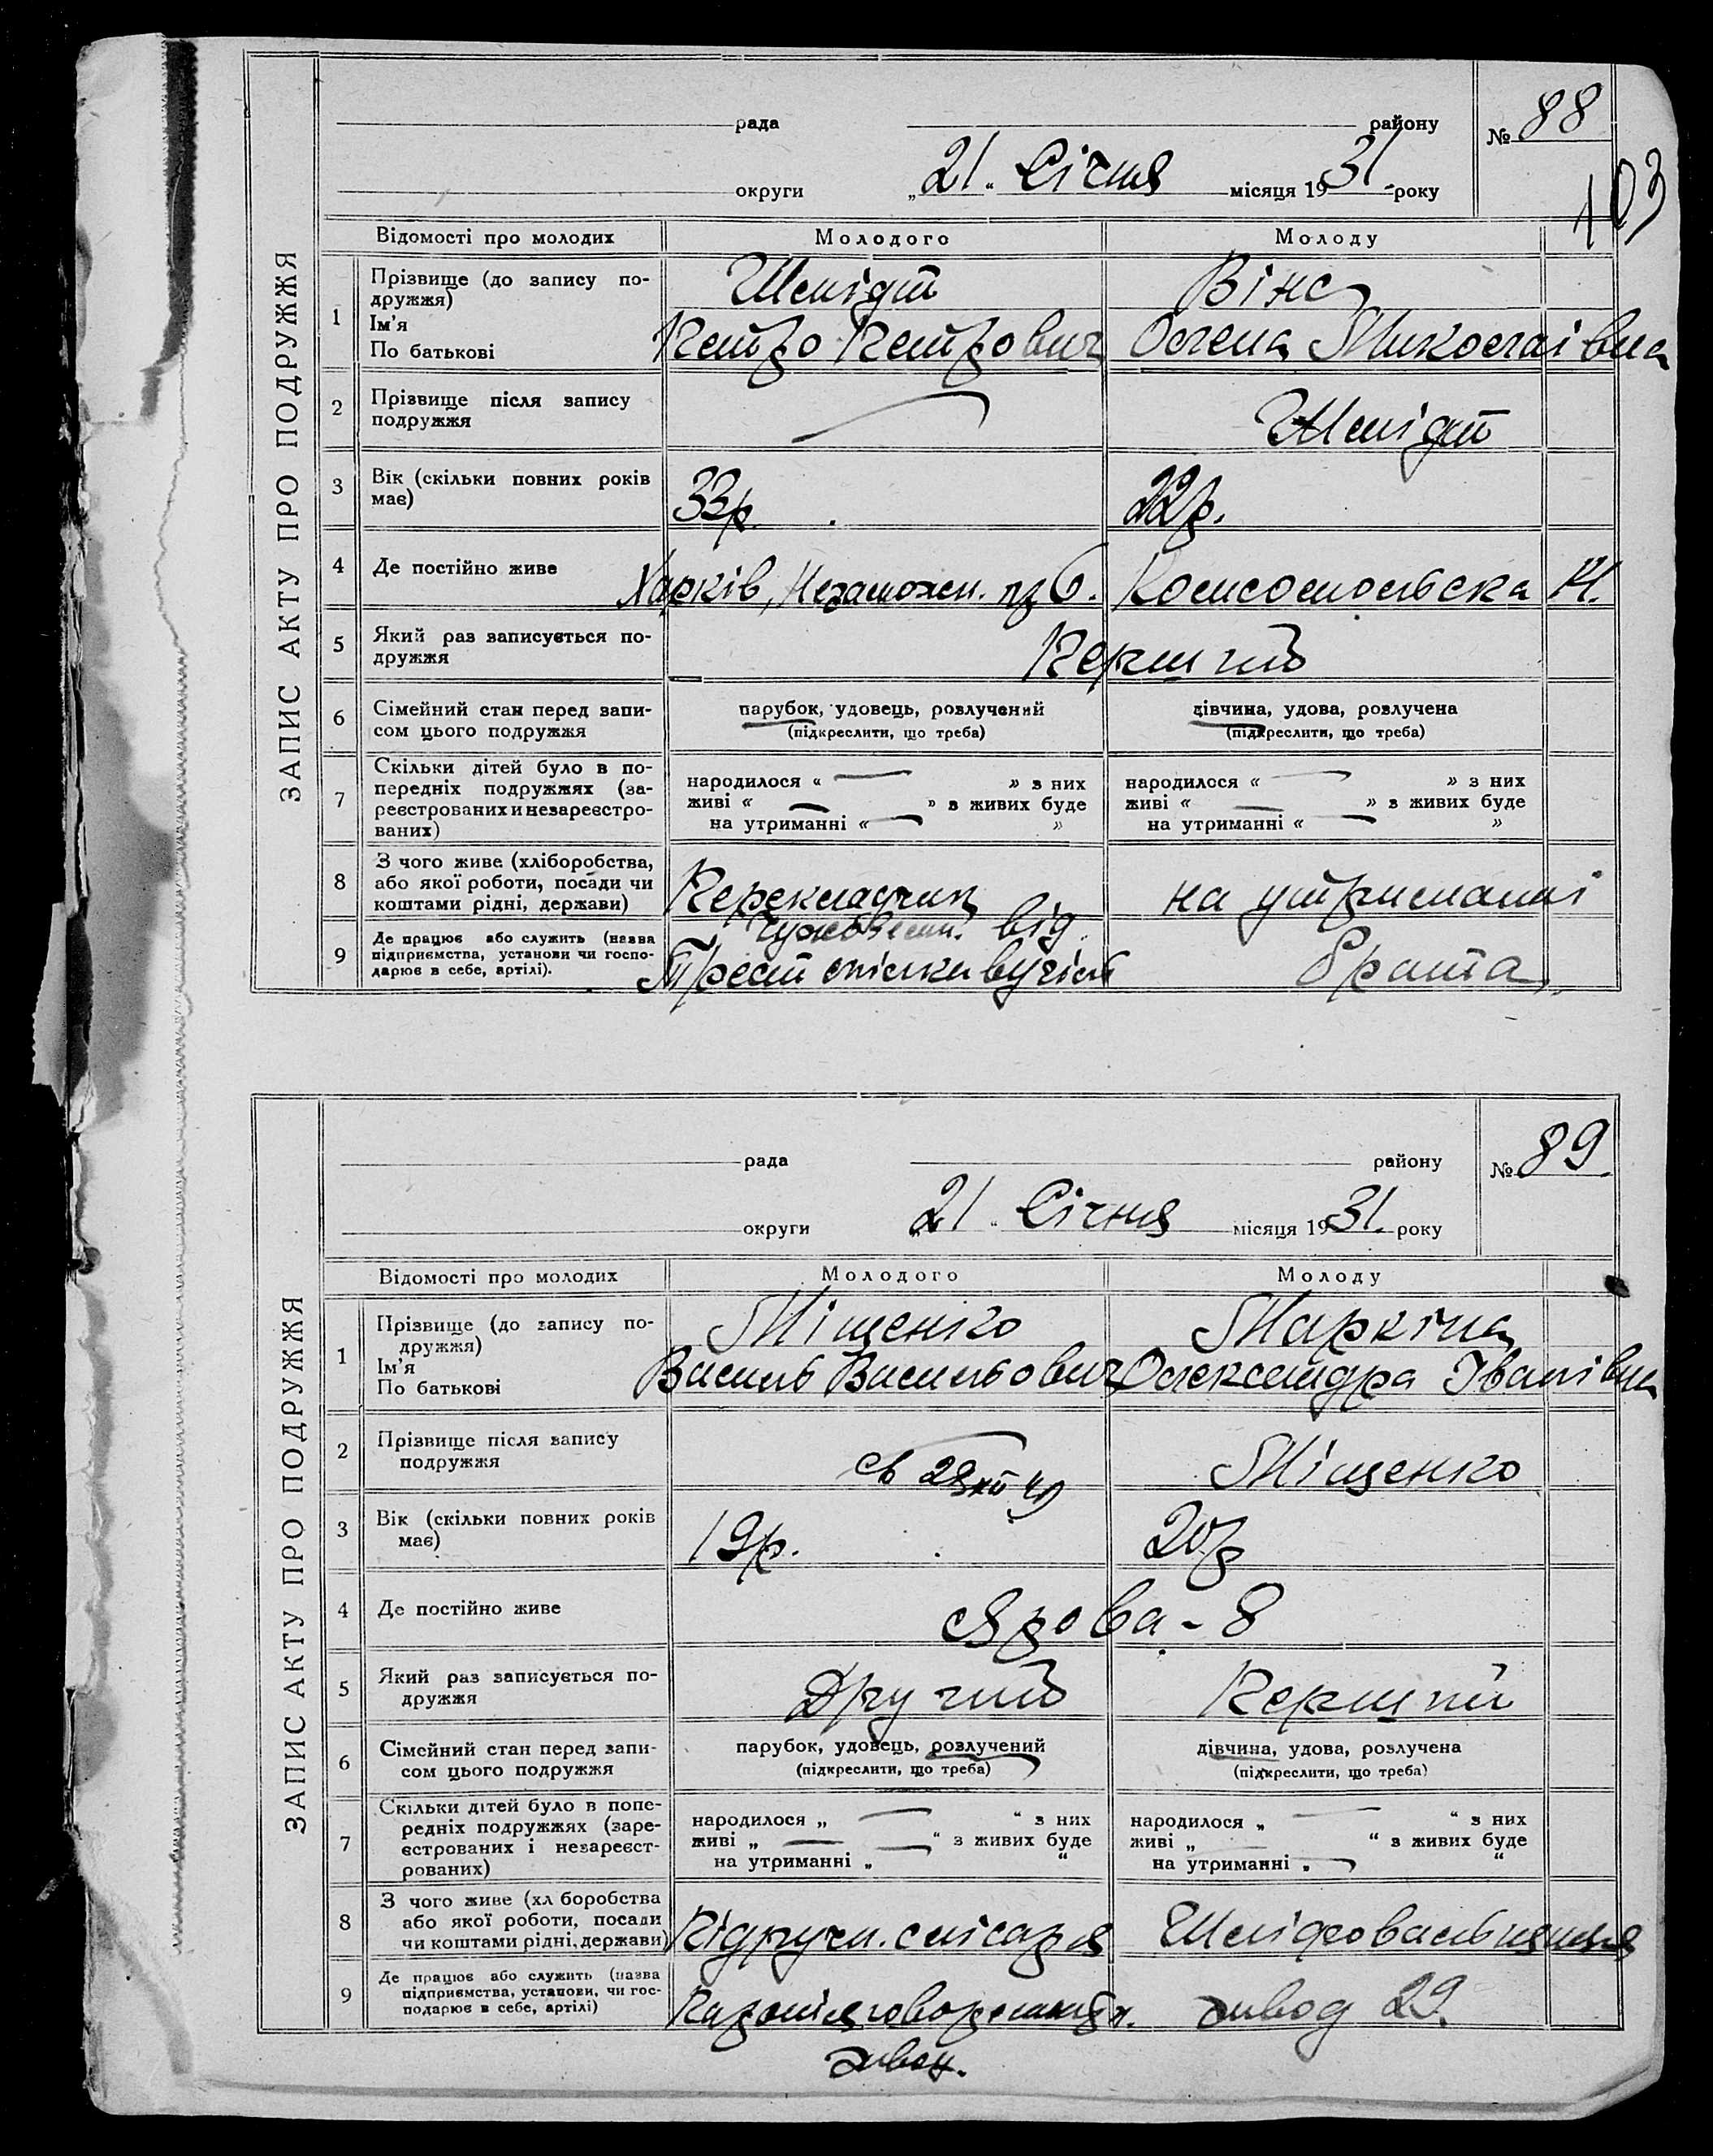 № 88
рада району
103
округи „21“ Січня місяця 1931 року
ЗАПИС АКТУ ПРО ПОДРУЖЖЯ
Відомості про молодих Молодого Молоду
1 Прізвище (до запису по-
дружжя)
Шмідт Вінс
Ім'я
По батькові
Петро Петрович Олена Миколаівна
2 Прізвище після запису
подружжя
Шмідт
3 Вік (скільки повних років
має)
33р. 22р.
4 Де постійно живе Харків, Незаможн. пр 6. Комсомольска 14.
5 Який раз записується по-
дружжя
Перший
6 Сімейний стан перед запи-
сом цього подружжя
парубок, удовець, розлучений
(підкреслити, що треба)
дівчина, удова, розлучена
(підкреслити, що треба)
7 Скільки дітей було в по-
передніх подружжях (за-
реєстрованих и незареєстро-
ваних)
народилося « — » з них
живі « — » з живих буде
на утриманні « — »
народилося « — » з них
живі « — » з живих буде
на утриманні « — »
8 З чого живе (хліборобства,
або якої роботи, посади чи
коштами рідні, держави)
Перекладчик на утриманні
9 Де працює або служить (назва
підприємства, установи чи госпо-
дарює в себе, артілі).
від
Трест брата
№ 89.
рада району
округи 21 “ Січня місяця 1931. року
ЗАПИС АКТУ ПРО ПОДРУЖЖЯ
Відомості про молодих Молодого Молоду
1 Прізвище (до запису по-
дружжя)
Міщенко Маркіна
Ім'я
По батькові
Василь Васильович Олександра Іванівна
2 Прізвище після запису
подружжя
Міщенко
3 Вік (скільки повних років
має)
19р. 20р
4 Де постійно живе Ярова - 8
5 Який раз записується по-
дружжя
Другий Перший
6 Сімейний стан перед запи-
сом цього подружжя
парубок, удовець, розлучений
(підкреслити, що треба)
дівчина, удова, розлучена
(підкреслити, що треба)
7 Скільки дітей було в попе-
редніх подружжях (заре-
єстрованих і незареєст-
рованих)
народилося „ — “ з них
живі „ — “ з живих буде
на утриманні „ “
народилося „ — “ з них
живі „ — “ з живих буде
на утриманні „ — “
8 З чого живе (хл боробства
або якої роботи, посади
чи коштами рідні, держави)
Підручн. слісаря Шліфовальниця
9 Де працює або служить (назва
підприємства, установи, чи гос-
подарює в себе, артілі)
Паротяговоремонтн. завод 29.
завод.